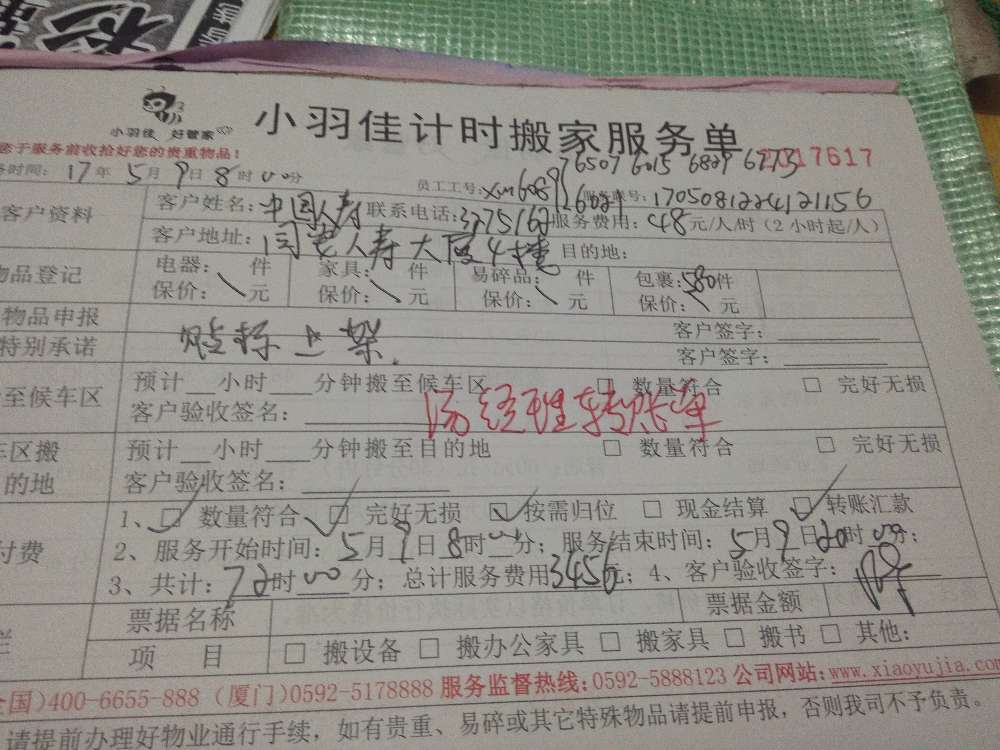 小羽佳 好管家
小羽佳计时搬家服务单
您于服务前收拾好您的贵重物品!
务时间: 17年5月9日8时00分 员工工号: xm6089 76507 6015 6829 6273
17617
6021 服务单号: 1705081224121156
客户资料 客户姓名: 中国人寿 联系电话: 服务费用: 48元/人/时(2小时起/人)
客户地址: 人寿大厦4楼 目的地:
物品登记 电器: 件 家具: 件 易碎品: 件 包裹: 580件
保价: 元 保价: 元 保价: 元 保价: 元
物品申报 客户签字:
特别承诺 贴标上架. 客户签字:
至候车区 预计 小时 分钟搬至候车区 □ 数量符合 □ 完好无损
客户验收签名: 汤经理转账单
车区搬 预计 小时 分钟搬至目的地 □ 数量符合 □ 完好无损
的地 客户验收签名:
1、☑ 数量符合 ☑ 完好无损 ☑ 按需归位 □ 现金结算 ☑ 转账汇款
付费 2、服务开始时间: 5月9日8时00分; 服务结束时间: 5月9日20时00分;
3、共计: 72时00分; 总计服务费用3456元; 4、客户验收签字:
票据名称 票据金额
栏 项 目 □ 搬设备 □ 搬办公家具 □ 搬家具 □ 搬书 □ 其他:
全国)400-6655-888 (厦门)0592-5178888 服务监督热线:0592-5888123 公司网站:www.xiaoyujia.com
请提前办理好物业通行手续, 如有贵重、易碎或其它特殊物品请提前申报, 否则我司不予负责。